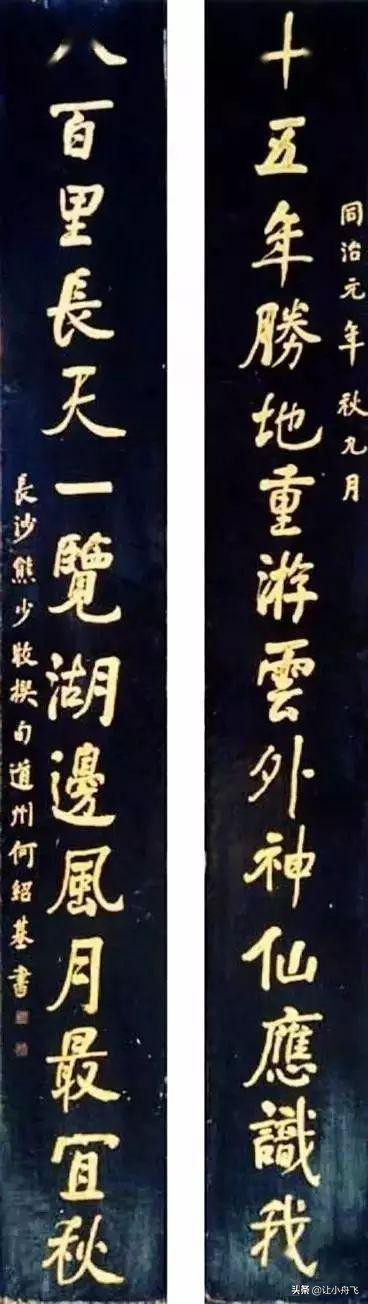 同治元年秋九月
十五年勝地重游雲外神仙應識我
八百里長天一覽湖邊風月最宜秋
長沙熊少牧撰句道州何紹基書
头条 @让小舟飞